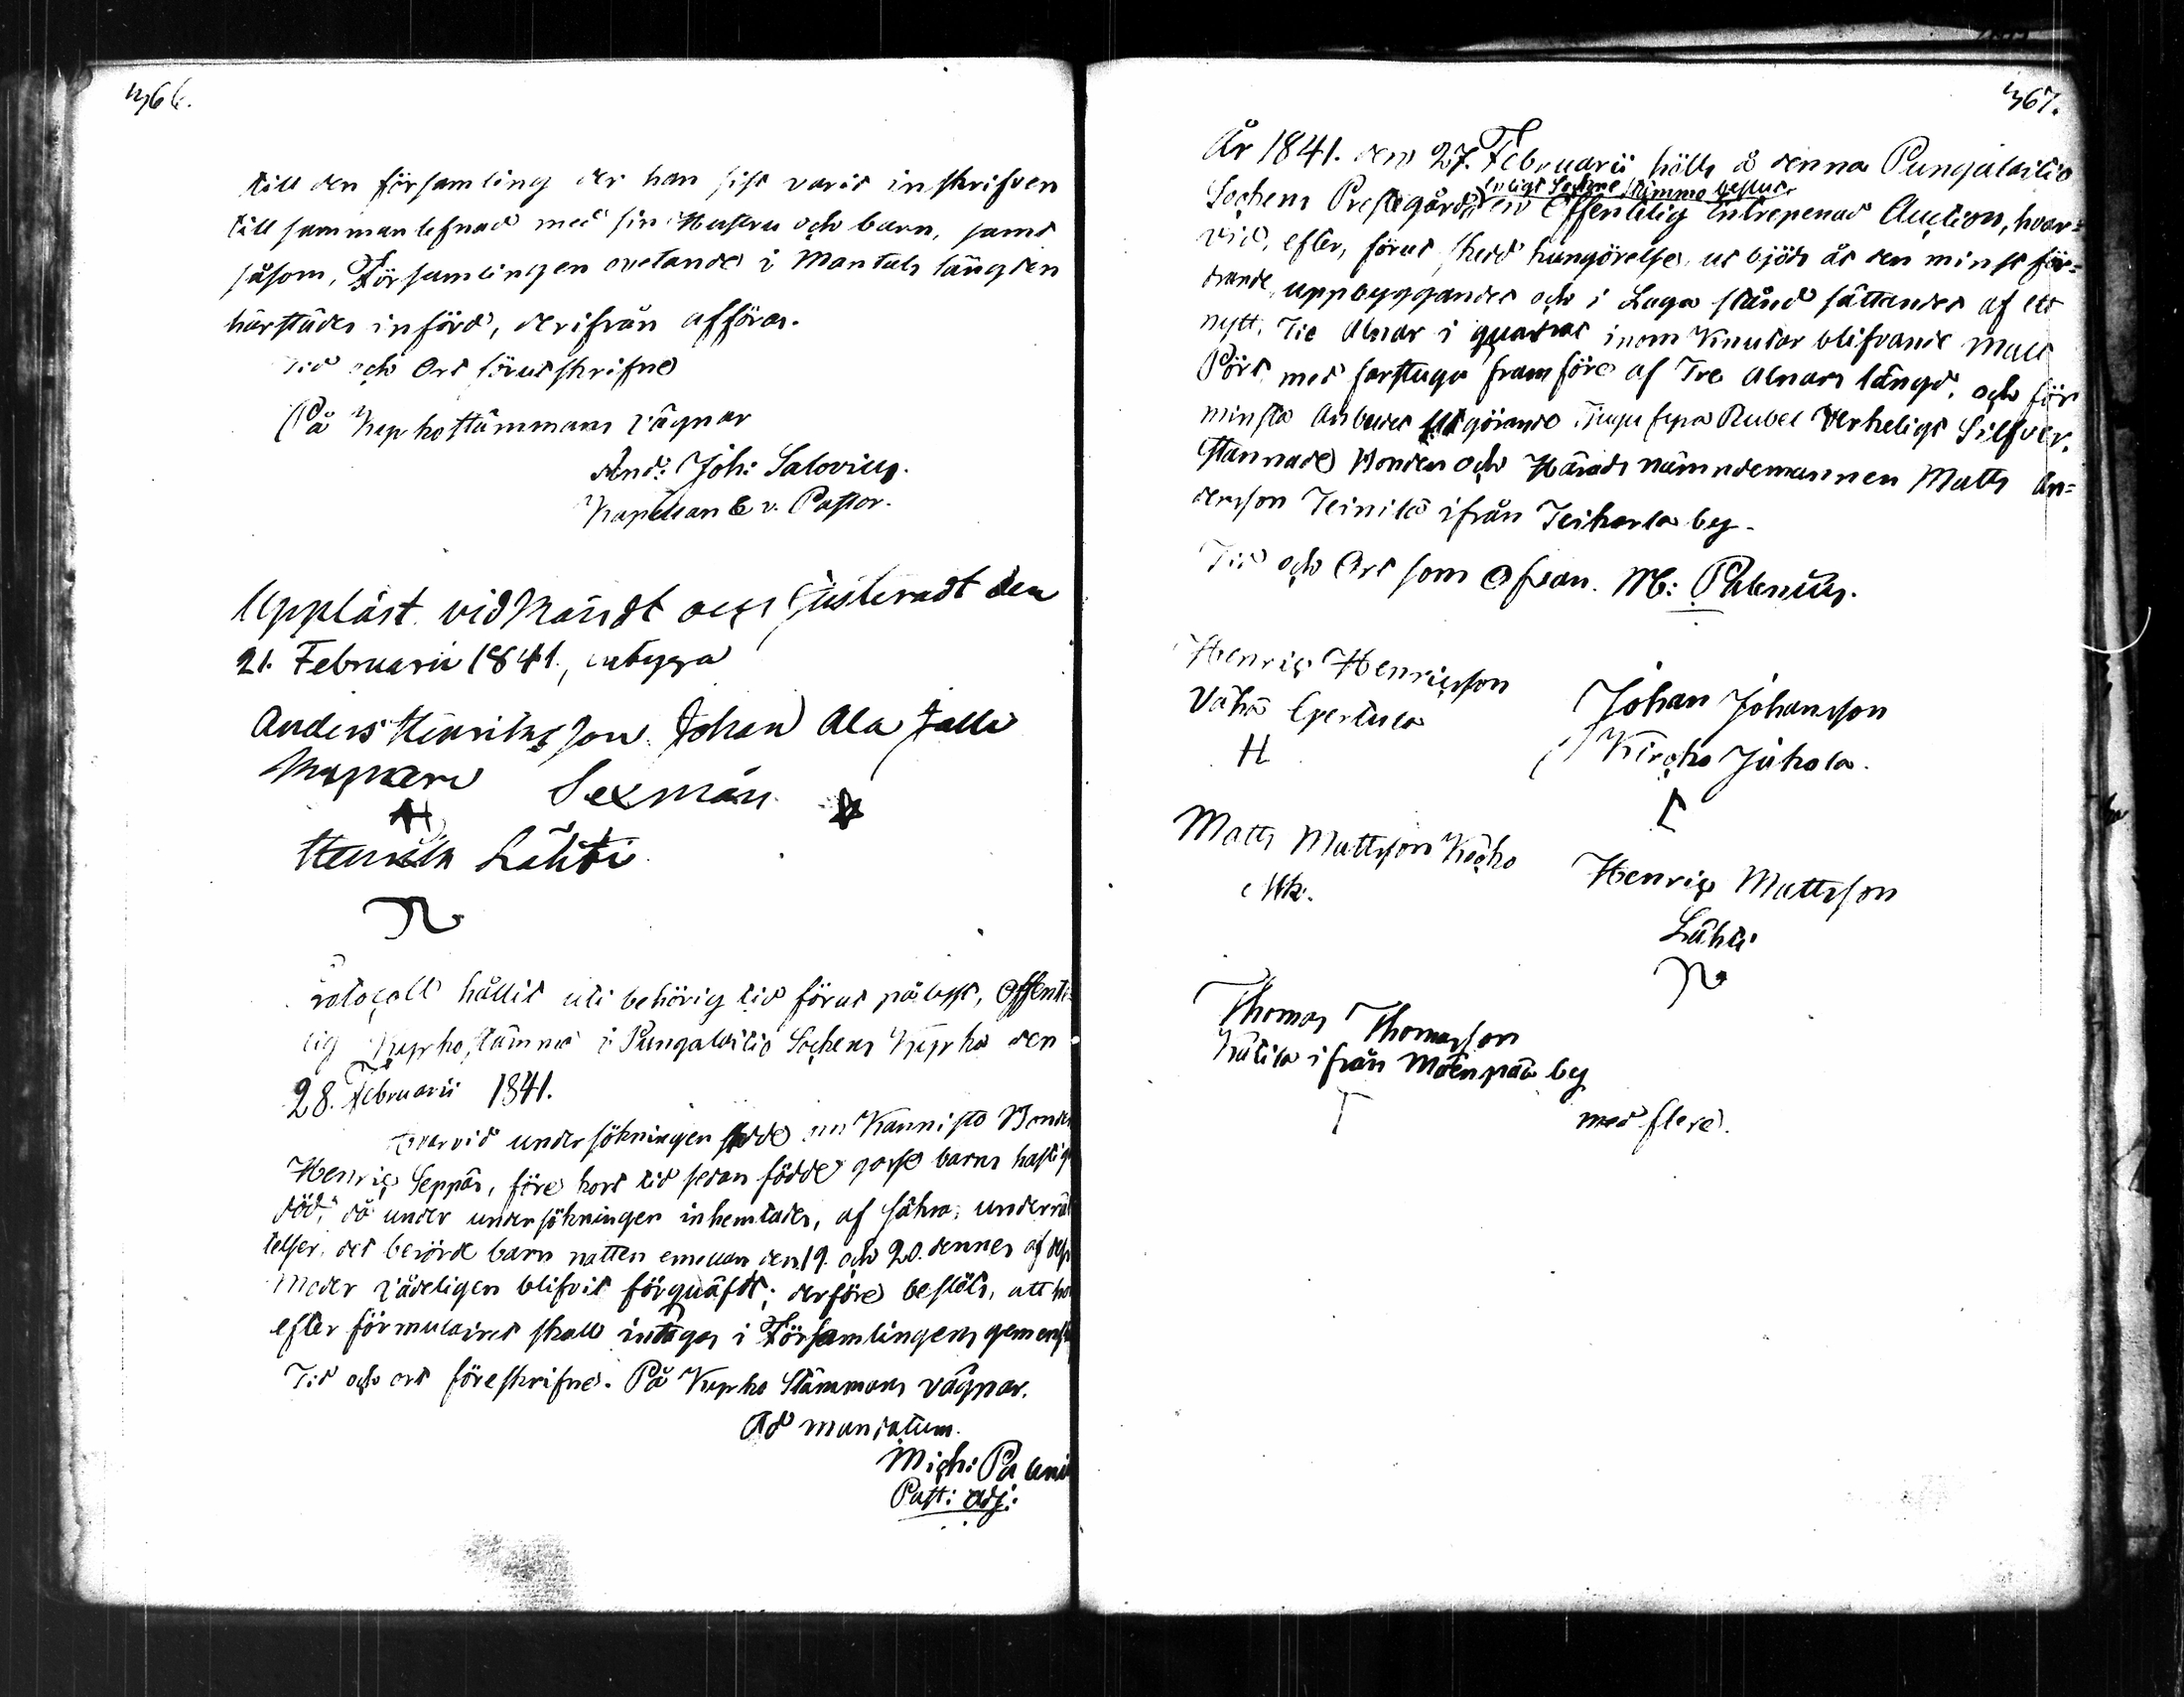 366.
till den församling der han sist varit inskrifven
till sammanlefnad med sin Hustru och barn, samt
såsom, Församlingen ovetande i Mantals längden
härstädes införd, derifrån afföras.
Tid och Ort förutskrifne
På Kyrkostämmans vägnar
And: Joh: Salovius.
Kapellan e. v. Pastor.
Uppläst vidkändt och justeradt den
21. Februarii 1841, intyga
Anders Henriksson Johan Ala Talli
Sexmän
Henrik Lähti
Protocoll hållit uti behörig tid förut pålyst, Offent-
lig Kyrkostämma i Pungalaitio Sockens Kyrka den
28. Februarii 1841.
Hvarvid undersökningen skedde om Kannisto Bonden
Henric Seppäs, före kort tid sedan födde gosse barns hastiga
död, då under undersökningen inhemtades, af säkra, underrät
telser, det berörde barn natten emellan den 19. och 20. dennes af dess
Moder vådeligen blifvit förquäfdt; derföre beslöts, att hon
efter formulairet skall intagas i Församlingens gemensk
Tid och ort föreskrifne. På Kyrko Stämmans vägnar.
Ad mandatum.
Mich: Paleni
Past: adj:
367.
År 1841. den 27. Februarii hölls å denna Pungalaitio
enligt Sockne Stämmo beslut
Sockens Prestegård, en Offentelig Entrepenad Auction, hvar=
vid, efter, förut skedd kungörelse, ut bjöds åt den minst for=
drande, uppbyggandet och i Laga stånd sättandet af ett
nytt, Tie Alnar i quadrat inom Knutar blifvande Malt
Pört, med farstuga framföre af Tre Alnars längd, och för
minsta Anbudet utgörande Tjugu fyra Rubel Verkeligt Silfver,
stannade Bonden och Härads nämndemannen Matts An=
dersson Teinilä ifrån Teikarla by.
Tid och Ort som Ofvan. M: Palenius.
Henric Henricsson
Vähä Epertula
H
Johan Johansson
Kircko Juhola.
Matts Mattsson Kocko
Mk.
Henric Mattsson
Lähti
Thomas Thomasson
Kätilä ifrån Moenpää by
T
med flere.